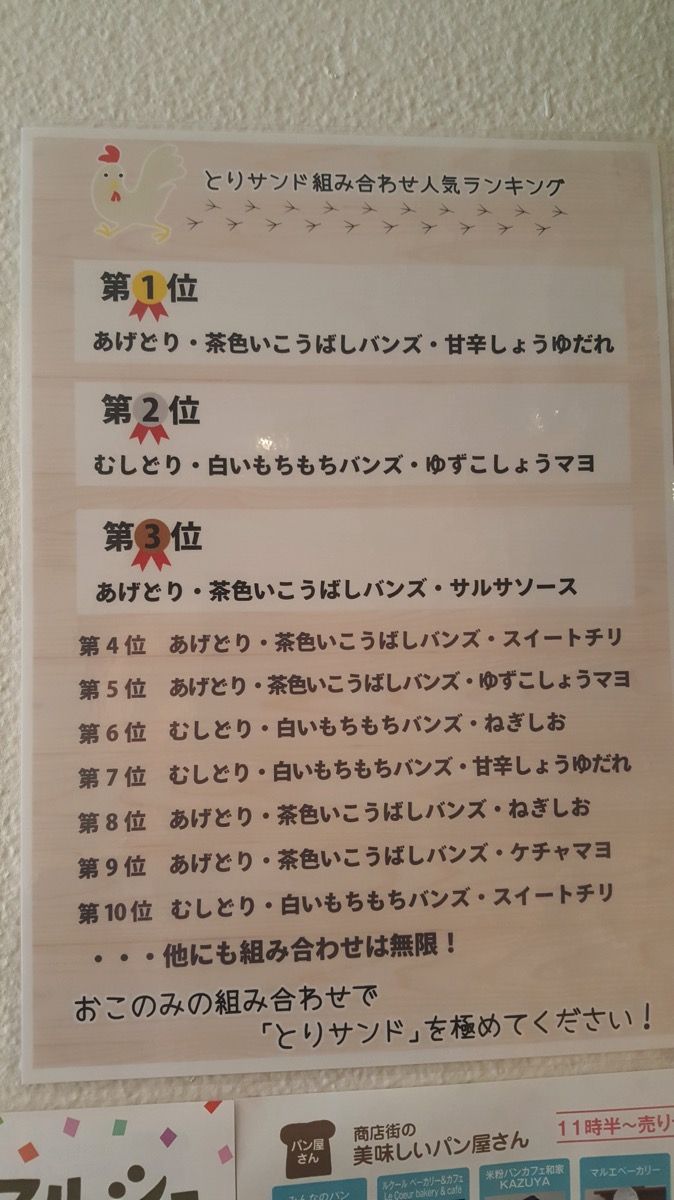 とりサンド組み合わせ人気ランキング
第1位
あげどり・茶色いこうばしバンズ・甘辛しょうゆだれ
第2位
むしどり・白いもちもちバンズ・ゆずこしょうマヨ
第3位
あげどり・茶色いこうばしバンズ・サルサソース
第4位 あげどり・茶色いこうばしバンズ・スイートチリ
第5位 あげどり・茶色いこうばしバンズ・ゆずこしょうマヨ
第6位 むしどり・白いもちもちバンズ・ねぎしお
第7位 むしどり・白いもちもちバンズ・甘辛しょうゆだれ
第8位 あげどり・茶色いこうばしバンズ・ねぎしお
第9位 あげどり・茶色いこうばしバンズ・ケチャマヨ
第10位 むしどり・白いもちもちバンズ・スイートチリ
・・・他にも組み合わせは無限！
おこのみの組み合わせで
「とりサンド」を極めてください！
パン屋さん
商店街の
美味しいパン屋さん
11時半～売り
みんなのパン
ルクール ベーカリー&カフェ
Le Coeur bakery & cafe
米粉パンカフェ和家
KAZUYA
マルエベーカリー